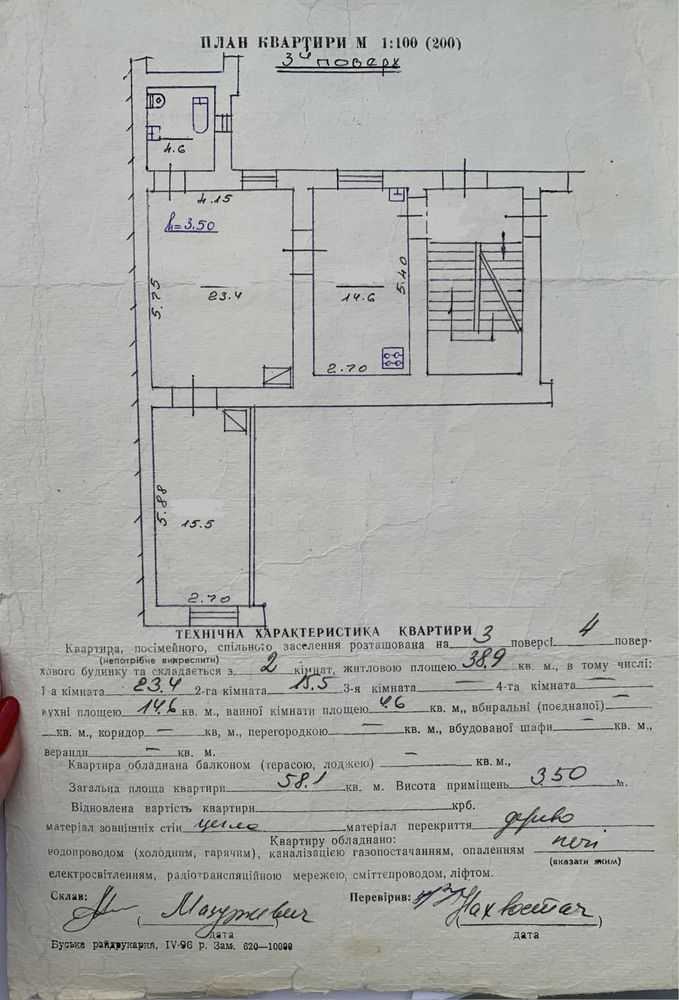 ПЛАН КВАРТИРИ М 1:100 (200)
3й поверх
4.6
4.15
h=3.50
5.75
23.4
14.6
5.40
2.70
5.88
15.5
2.70
ТЕХНІЧНА ХАРАКТЕРИСТИКА КВАРТИРИ
Квартира, посімейного, спільного заселення розташована на 3 поверсі 4 повер-
(непотрібне викреслити)
хового будинку та складається з 2 кімнат, житловою площею 38.9 кв. м., в тому числі:
1-а кімната 23.4 2-га кімната 15.5 3-я кімната — 4-та кімната —
кухні площею 14.6 кв. м., ванної кімнати площею 4.6 кв. м,, вбиральні (поєднаної) —
кв. м., коридор — кв, м., перегородкою — кв. м., вбудованої шафи — кв. м.,
веранди — кв. м.
Квартира обладнана балконом (терасою, лоджею) — кв. м.,
Загальна площа квартири 58.1 кв. м. Висота приміщень 3.50 м.
Відновлена вартість квартири крб.
матеріал зовнішніх стін цегла матеріал перекриття дерево
Квартиру обладнано:
водопроводом (холодним, гарячим), каналізацією газопостачанням, опаленням печі
(вказати яким)
електросвітленням, радіотрансляційною мережею, сміттєпроводом, ліфтом.
Склав: Перевірив:
( Мазуркевич ) ( Нахвостач )
дата дата
Буська райдрукарня, IV-96 р. Зам. 620—10000